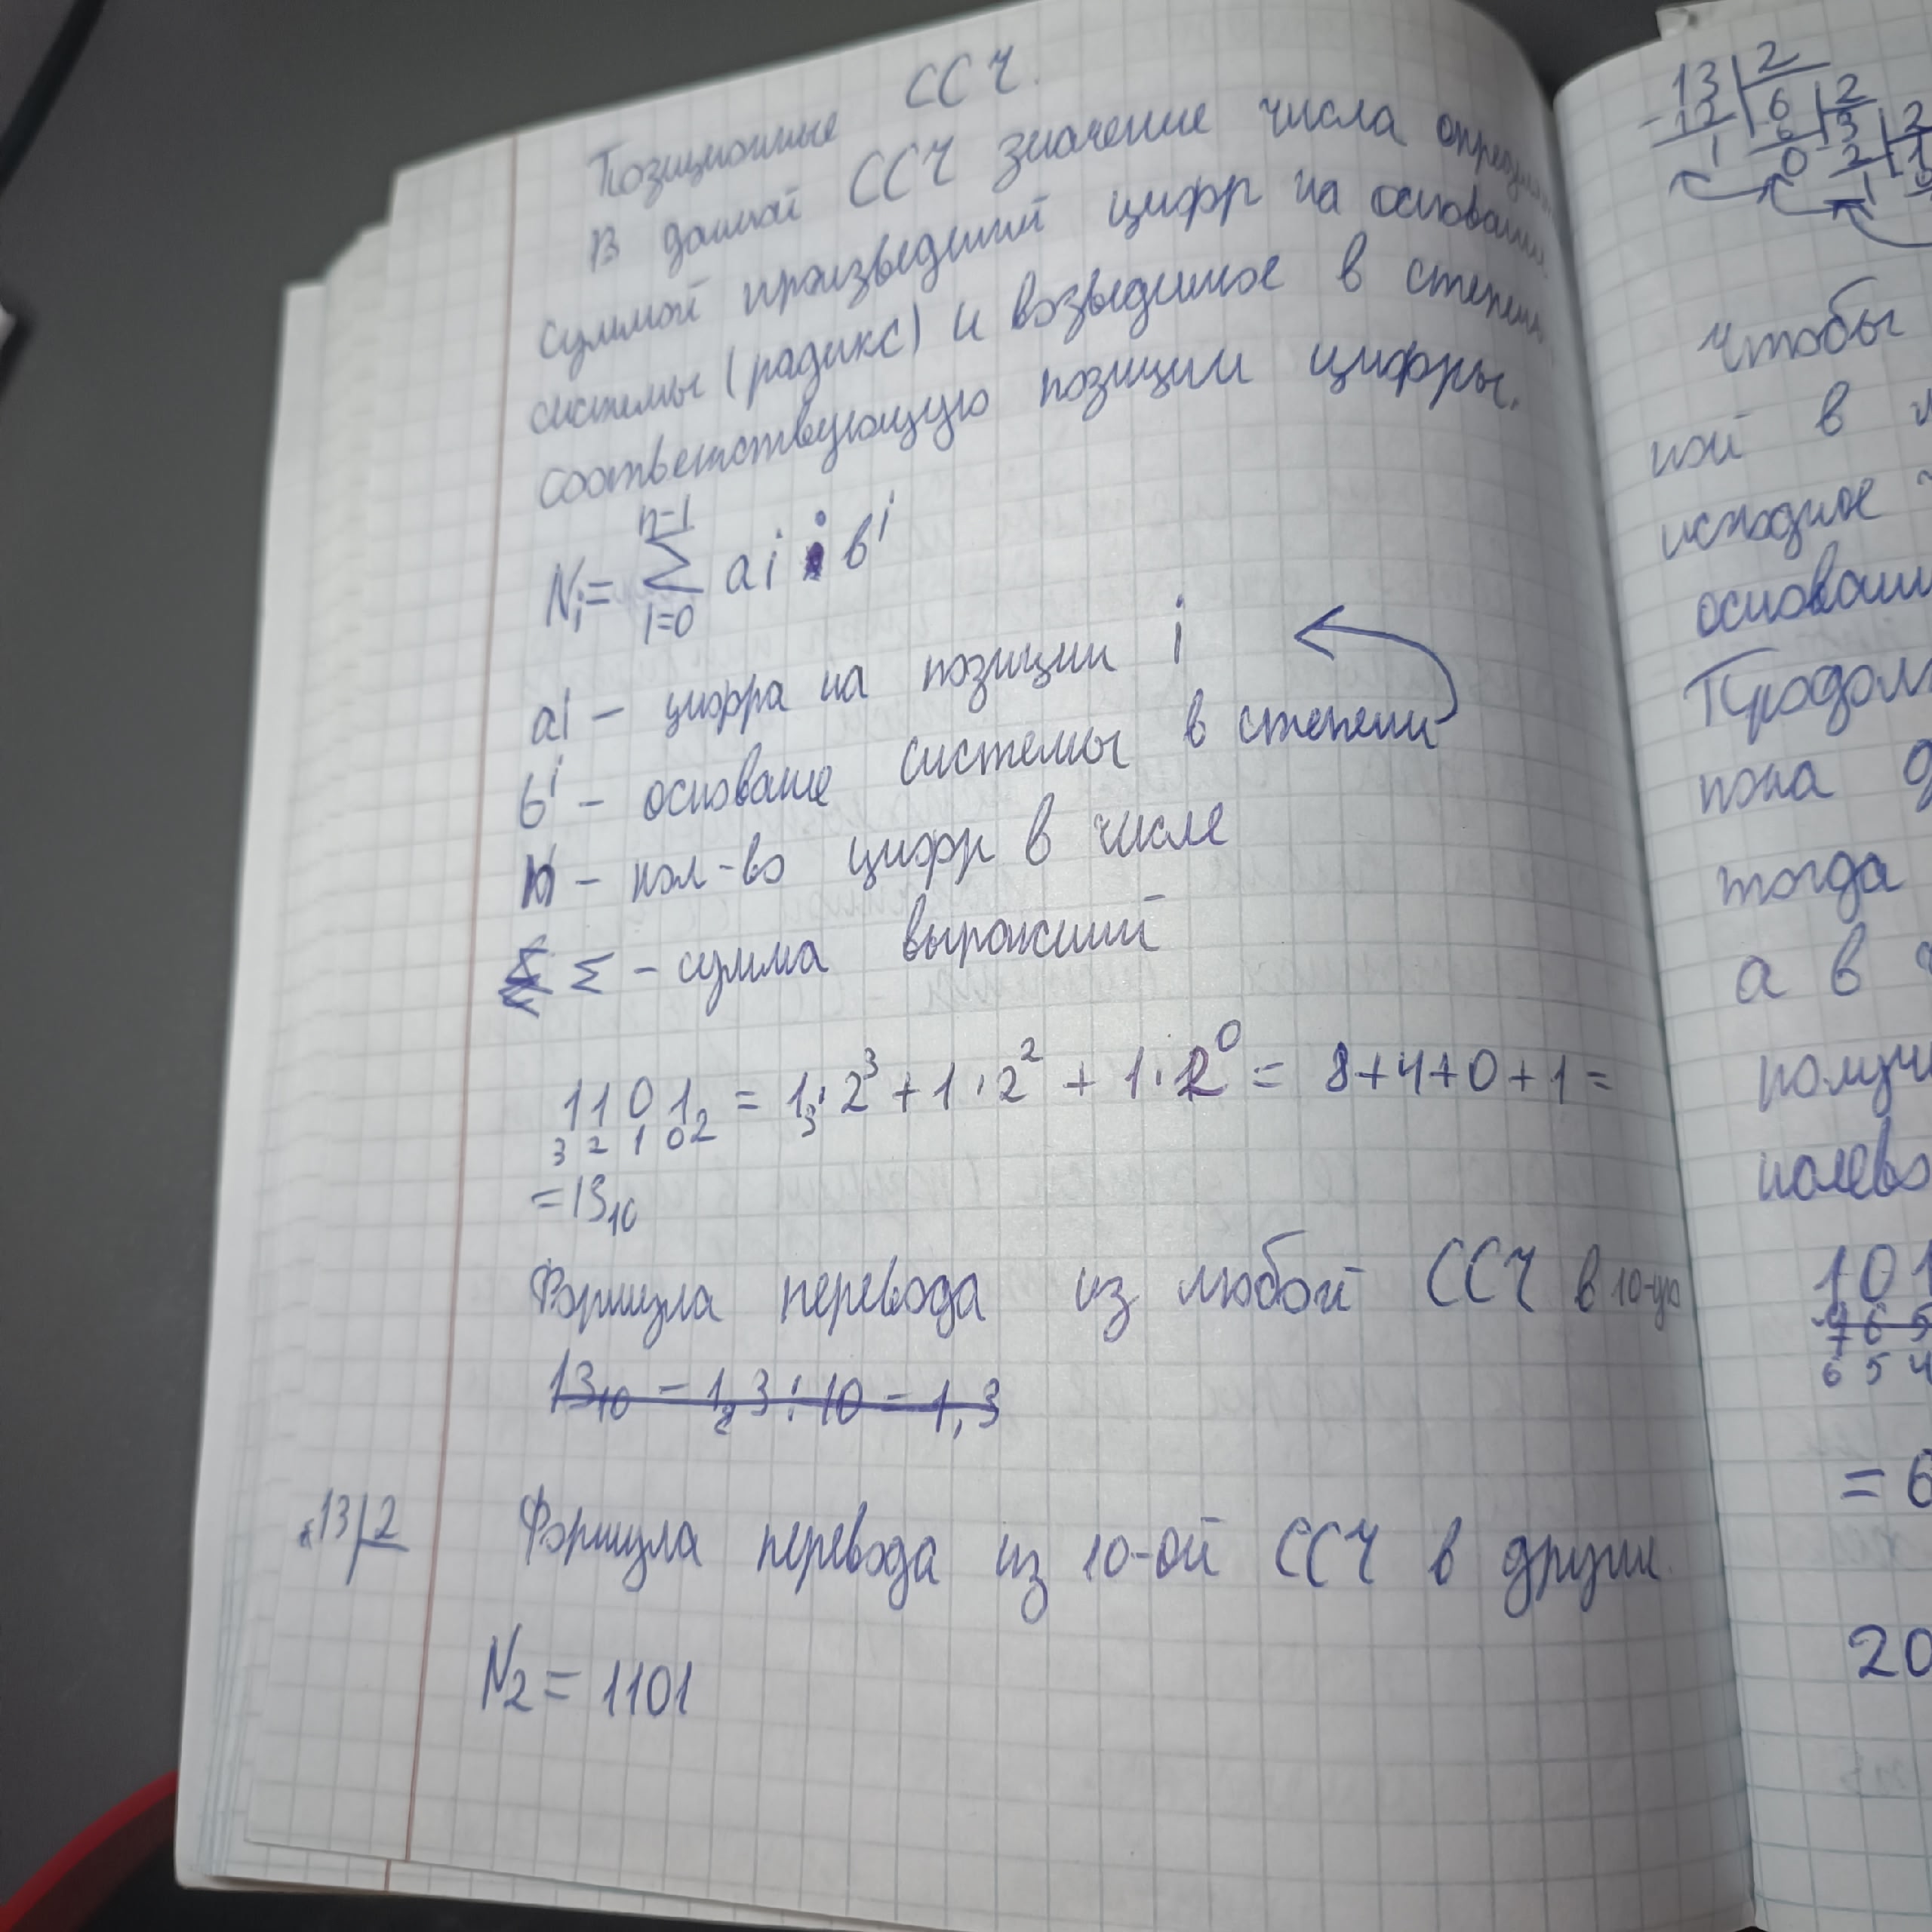 Позиционные ССЧ.
В данной ССЧ значение числа
суммой произведений цифр на основание
системы (радикс) и возведенное в степень
соответствующую позиции цифры.
n-1
Ni = Σ ai · bⁱ
i=0
ai – цифра на позиции i
bⁱ – основание системы в степени
n – кол-во цифр в числе
Σ – сумма выражений
1101₂ = 1·2³ + 1·2² + 1·2⁰ = 8+4+0+1 =
3 2 1 0
= 13₁₀
Формула перевода из любой ССЧ в 10-ую
13₁₀ = 1,3 : 10 = 1,3
13 2
Формула перевода из 10-ой ССЧ в другие.
N₂ = 1101
13 2
-12 6 2
1 6 3 2
0 2 1
1
Чтобы
ной в
исходное
Продол
пока
тогда
а в
получ
нолево
101
6 5 4
= 6
20